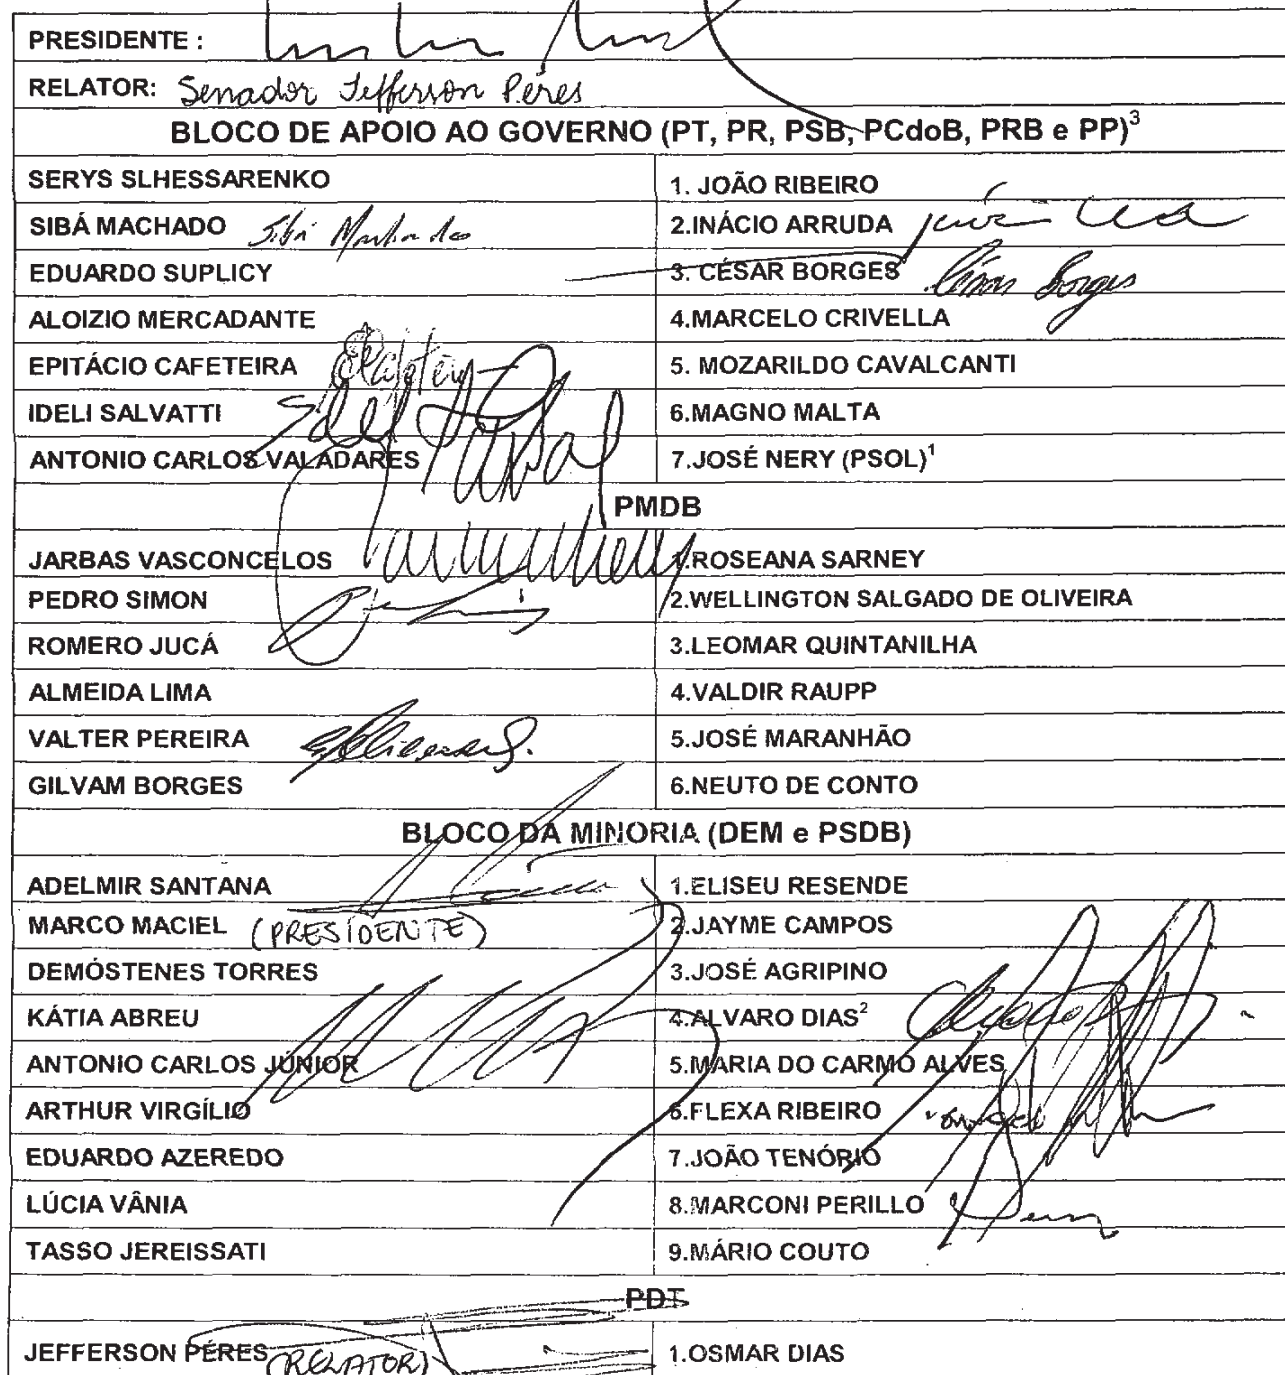 PRESIDENTE :
RELATOR: Senador Jefferson Péres
BLOCO DE APOIO AO GOVERNO (PT, PR, PSB, PCdoB, PRB e PP)³
SERYS SLHESSARENKO 1. JOÃO RIBEIRO
SIBÁ MACHADO Sibá Machado 2.INÁCIO ARRUDA
EDUARDO SUPLICY 3. CÉSAR BORGES César Borges
ALOIZIO MERCADANTE 4.MARCELO CRIVELLA
EPITÁCIO CAFETEIRA 5. MOZARILDO CAVALCANTI
IDELI SALVATTI 6.MAGNO MALTA
ANTONIO CARLOS VALADARES 7.JOSÉ NERY (PSOL)¹
PMDB
JARBAS VASCONCELOS 1.ROSEANA SARNEY
PEDRO SIMON 2.WELLINGTON SALGADO DE OLIVEIRA
ROMERO JUCÁ 3.LEOMAR QUINTANILHA
ALMEIDA LIMA 4.VALDIR RAUPP
VALTER PEREIRA 5.JOSÉ MARANHÃO
GILVAM BORGES 6.NEUTO DE CONTO
BLOCO DA MINORIA (DEM e PSDB)
ADELMIR SANTANA 1.ELISEU RESENDE
MARCO MACIEL (PRESIDENTE) 2.JAYME CAMPOS
DEMÓSTENES TORRES 3.JOSÉ AGRIPINO
KÁTIA ABREU 4.ALVARO DIAS²
ANTONIO CARLOS JÚNIOR 5.MARIA DO CARMO ALVES
ARTHUR VIRGÍLIO 6.FLEXA RIBEIRO
EDUARDO AZEREDO 7.JOÃO TENÓRIO
LÚCIA VÂNIA 8.MARCONI PERILLO
TASSO JEREISSATI 9.MÁRIO COUTO
PDT
JEFFERSON PÉRES (RELATOR) 1.OSMAR DIAS